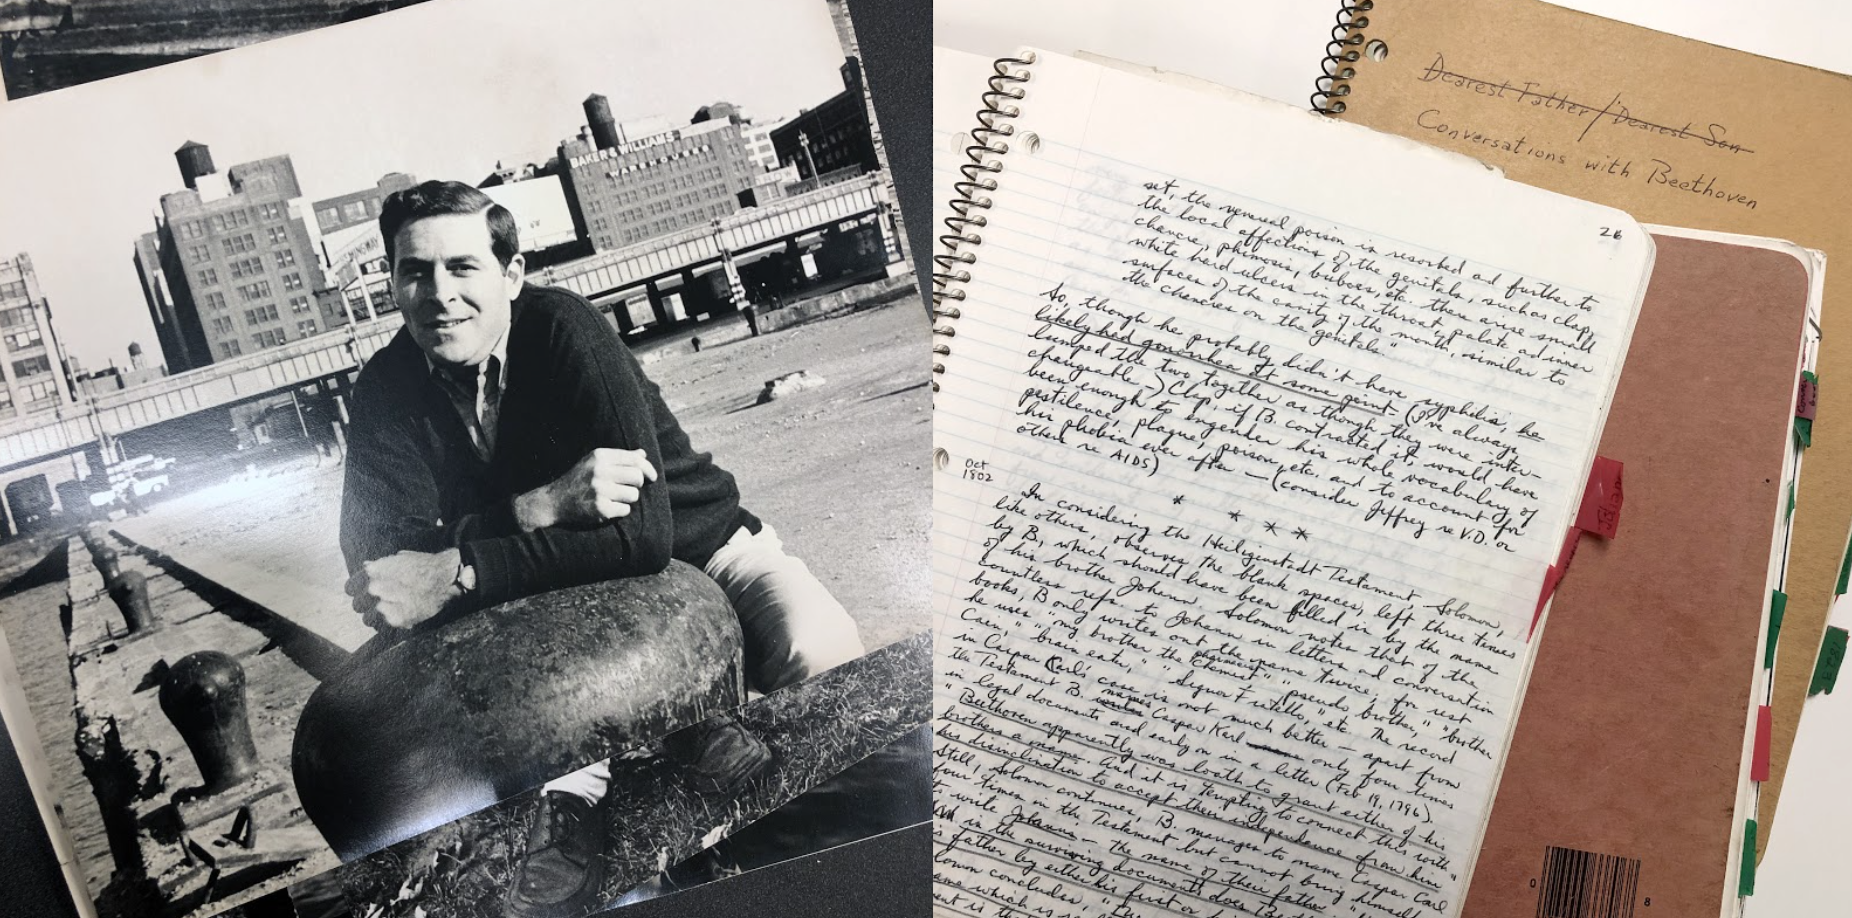 BAKER & WILLIAMS
WAREHOUSES
Dearest Father / Dearest Son
Conversations with Beethoven
26
set, the venereal poison is resorbed and further to
the local affections of the genitals, such as clap,
chancre, phimosis, buboes, etc. there arise small
white hard ulcers in the throat palate and inner
surfaces of the cavity of the mouth, similar to
the chancres on the genitals."
So, though he probably didn't have syphilis, he
likely had gonorrhea at some point. (I've always
lumped the two together as though they were inter-
changeable -) Clap, if B. contracted it, would have
been enough to engender his whole vocabulary of
pestilence, plague, poison, etc, and to account for
his phobia ever after — (consider Jeffrey re V.D. or
others re AIDS)
* * * *
Oct
1802
In considering the Heiligenstadt Testament Solomon,
like others, observes the blank spaces, left three times
by B, which should have been filled in by the name
of his brother Johann. Solomon notes that of the
countless refs. to Johann in letters and conversation
books, B only writes out the name twice; for rest
he uses "my brother the pharmacist" "pseudo brother," "brother
Cain," "brain eater," "Signor Fratello," etc. The record
in Caspar Karl's case is not much better — apart from
the Testament B. names Caspar Karl only four times
in legal documents and early on in a letter (Feb 19, 1796).
"Beethoven apparently was loath to grant either of his
brothers a name. And it is tempting to connect this with
his disinclination to accept their independence from him"
Still, Solomon continues, B. manages to name Caspar Carl
four times in the Testament but cannot bring himself
to write Johann — the name of their father.
in the surviving documents does
father by either his first or
concludes,
which is